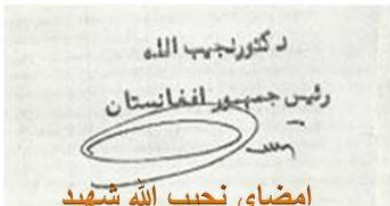 دکتورنجیب الله
رئیس جمهور افغانستان
امضای نجیب الله شهید